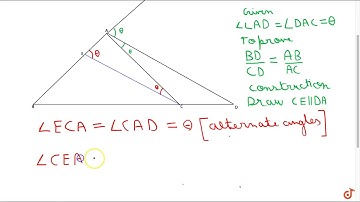 Given
∠LAD = ∠DAC = θ
To prove
BD/CD = AB/AC
construction
Draw CE||DA
A
θ
θ
E
θ
θ
B
C
D
∠ECA = ∠CAD = θ [alternate angles]
∠CEA